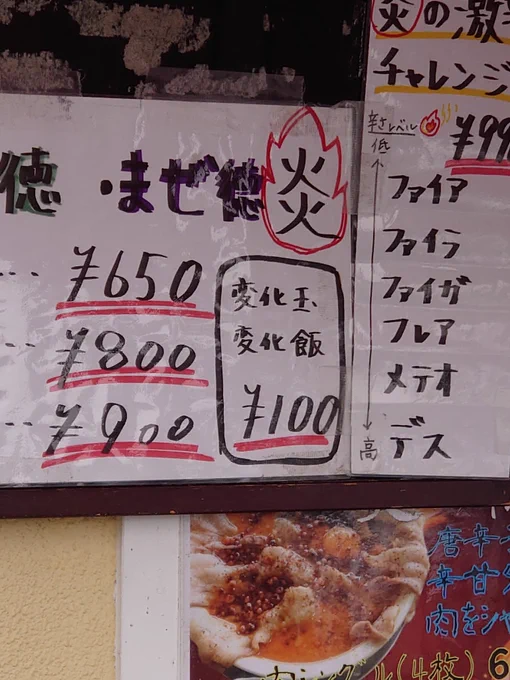 徳 ・まぜ徳 炎
… ¥650
… ¥800
… ¥900
変化玉
変化飯
¥100
炎の激
チャレンジ
辛さレベル
¥99
低
ファイア
ファイラ
ファイガ
フレア
メテオ
デス
高
唐辛子
辛甘
肉をジャ
(4枚) 6